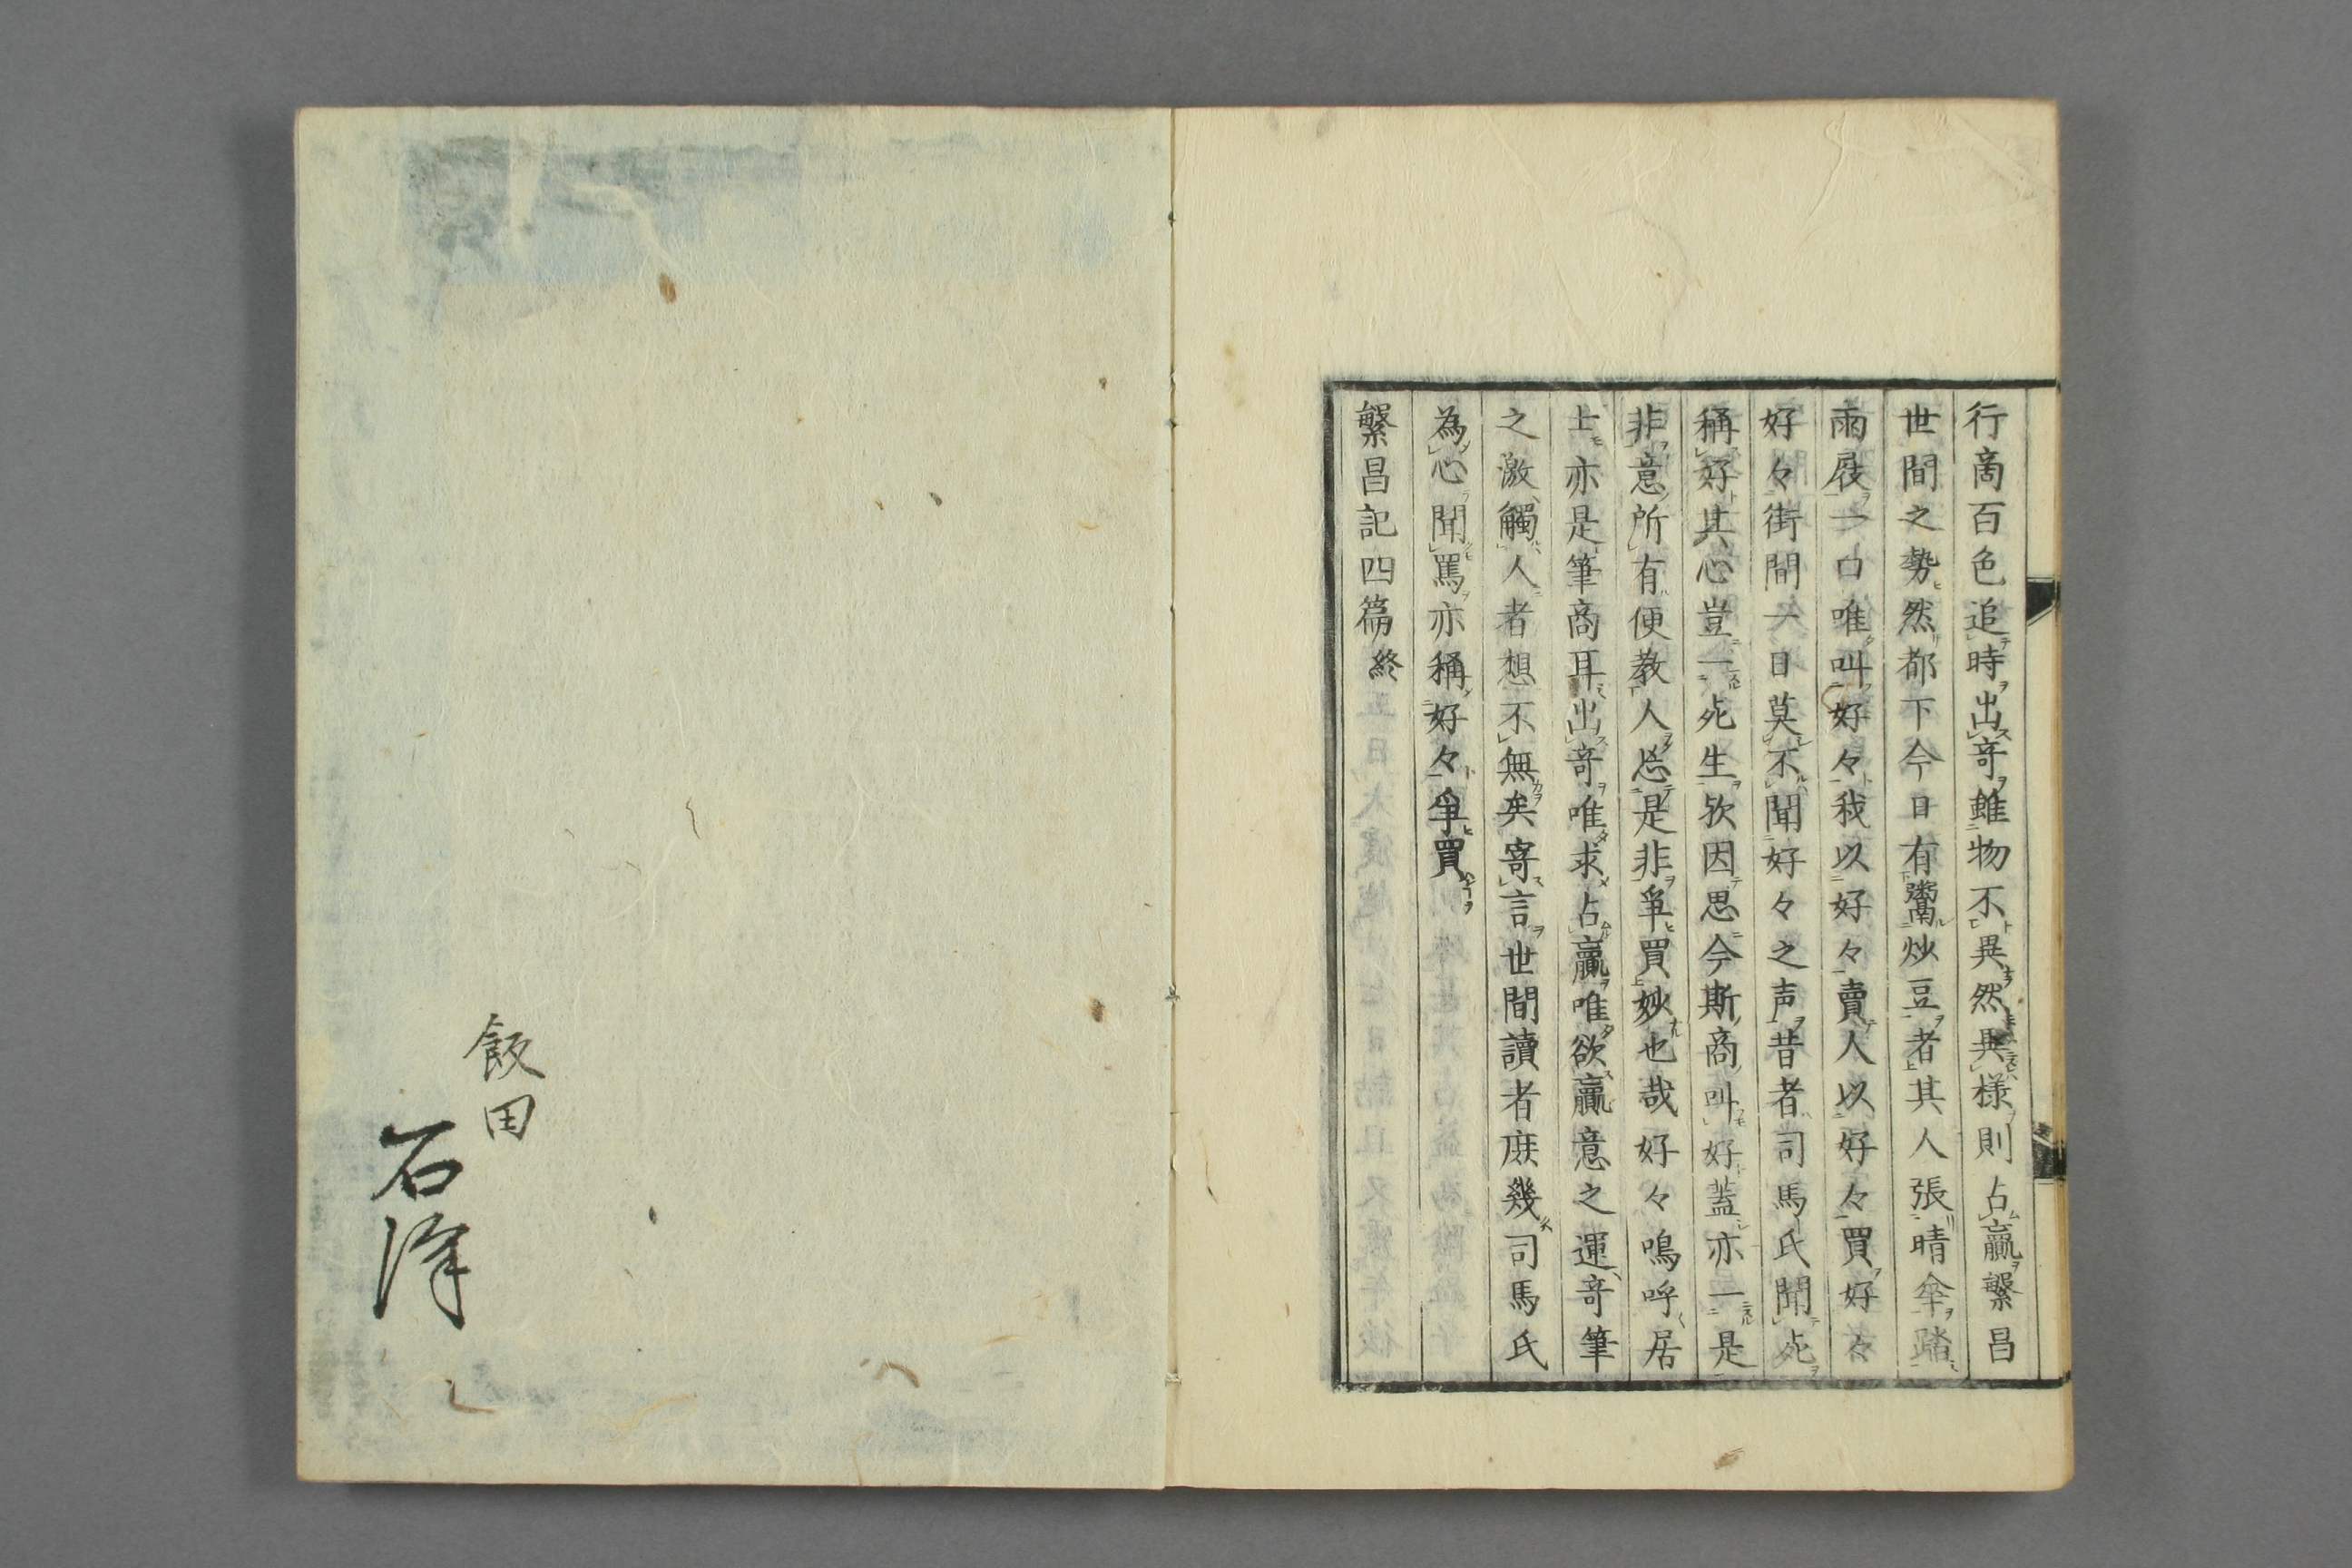 行商百色追時出竒雖物不異然異様則占贏繁昌
世間之勢然都下今日有鬻炒豆者其人張晴傘踏
雨屐一口唯叫好々我以好々賣人以好々買好々
好々街間一日莫不聞好々之声昔者司馬氏聞死
稱好其心豈一死生欤因思今斯商叫好蓋亦一是
非意所有便教人忘是非爭買妙也哉好々鳴呼居
士亦是筆商耳出竒唯求占贏唯欲贏意之運竒筆
之激觸人者想不無矣寄言世間讀者庶幾司馬氏
為心聞罵亦稱好々爭買
繁昌記四篇終
飯田
石澤